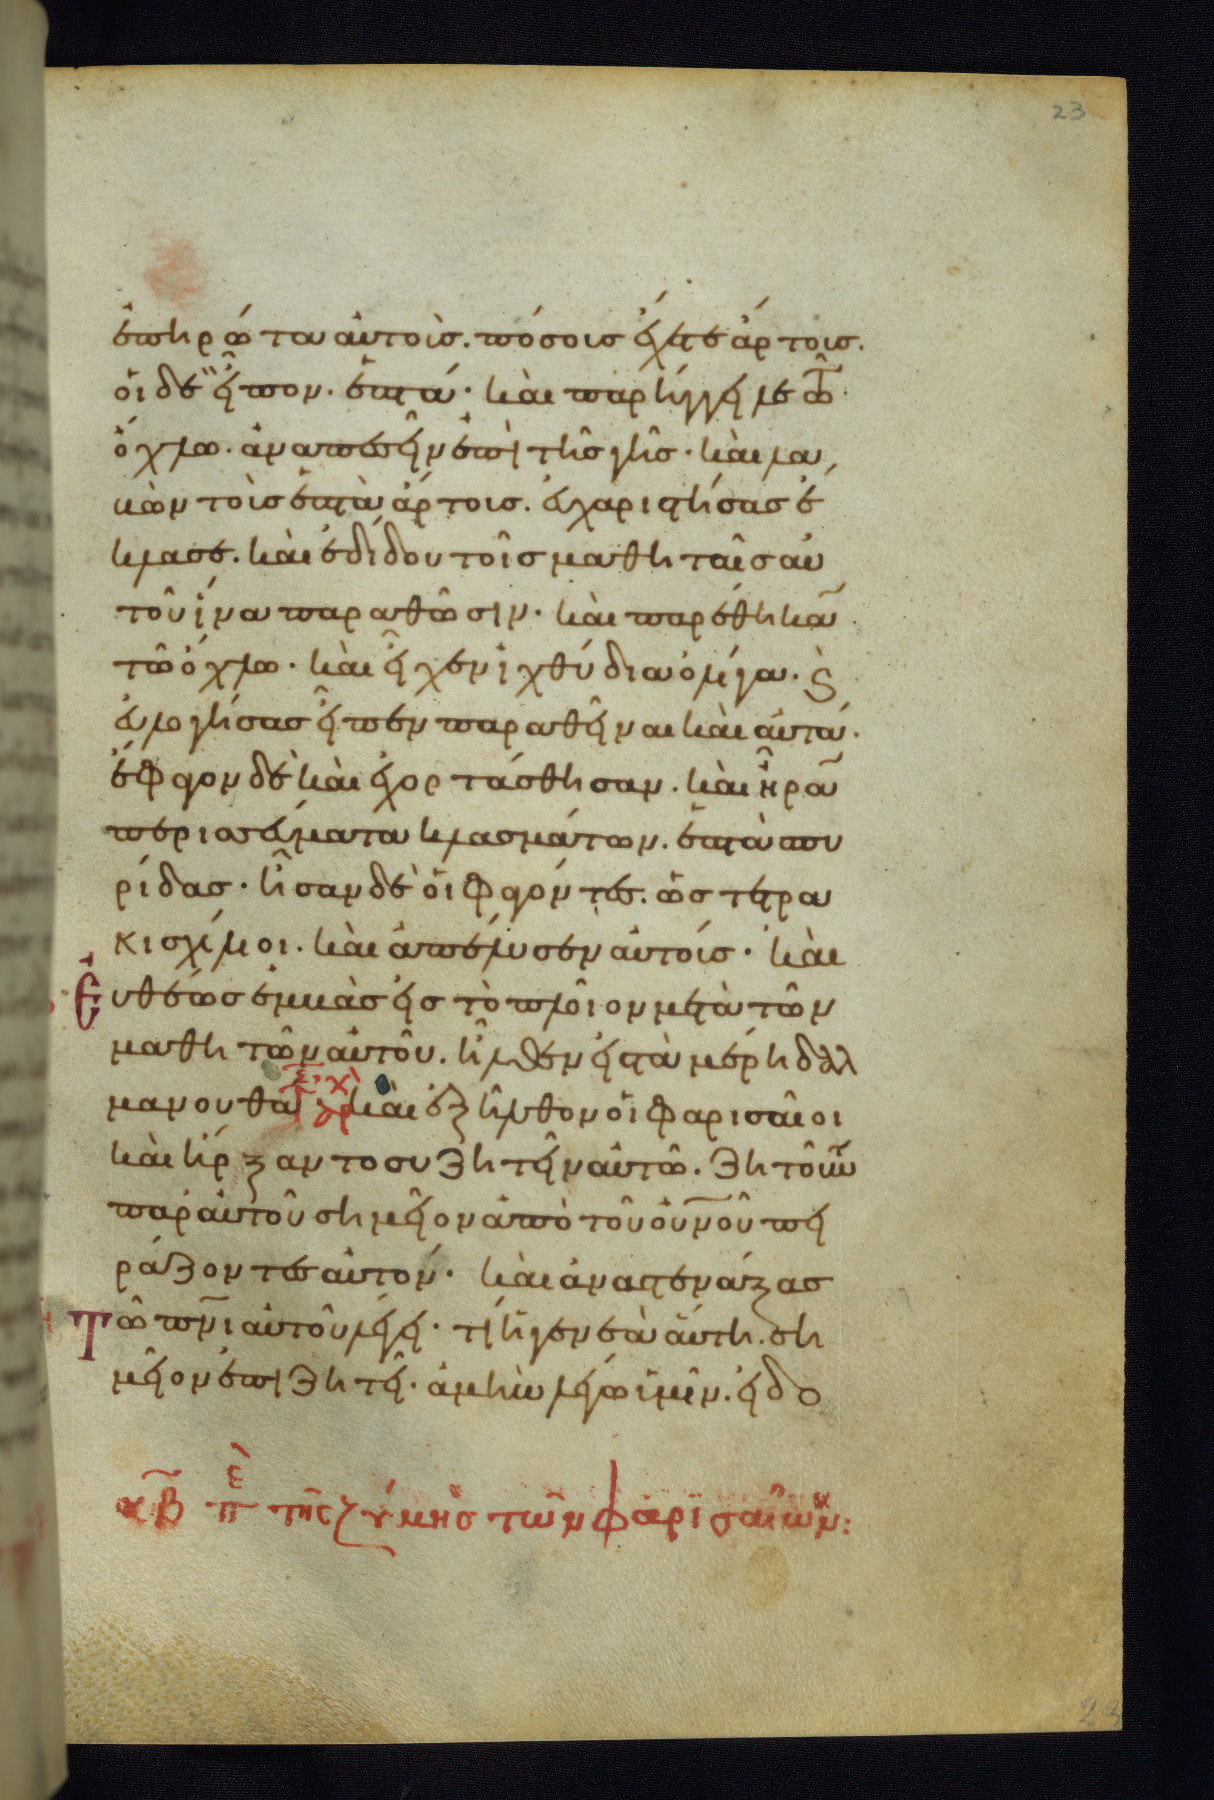 23
ἐπηρώτα αὐτοὺσ. πόσουσ ἔχετε ἄρτουσ.
οἱ δὲ εἶπον. ἑπτά. καὶ παρήγγειλε τῶ
ὄχλω. ἀναπεσεῖν ἐπὶ τῆσ γῆσ. καὶ λα
βὼν τοὺσ ἑπτὰ ἄρτουσ. εὐχαριστήσασ ἔ
κλασε. καὶ ἐδίδου τοῖσ μαθηταῖσ αὐ
τοῦ ἵνα παραθῶσιν. καὶ παρέθηκαν
τῶ ὄχλω. καὶ εἶχεν ἰχθύδια ὀλίγα. καὶ
εὐλογήσασ εἶπεν παραθεῖναι καὶ αὐτά.
ἔφαγον δὲ καὶ ἐχορτάσθησαν. καὶ ἦραν
περισσεύματα κλασμάτων. ἑπτὰ σπυ
ρίδασ. ἦσαν δὲ οἱ φαγόντεσ. ὡσ τετρα
κισχίλιοι. καὶ ἀπέλυσεν αὐτούσ. καὶ
Εὐθέωσ ἐμβὰσ εἰσ τὸ πλοῖον μετὰ τῶν
μαθητῶν αὐτοῦ. ἦλθεν εἰσ τὰ μέρη δαλ
μανουθά καὶ ἐξῆλθον οἱ φαρισαῖοι
καὶ ἤρξαντο συζητεῖν αὐτῶ. ζητοῦντεσ
παρ' αὐτοῦ σημεῖον ἀπὸ τοῦ οὐνοῦ πει
ράζοντεσ αὐτόν. καὶ ἀναστενάξασ
Τῶ πνι αὐτοῦ λέγει. τί ἡ γενεὰ αὕτη. ση
μεῖον ἐπιζητεῖ. ἀμὴν λέγω ὑμῖν. εἰ δο
κβ πε τῆς ζύμης τῶν φαρισαίων:
23